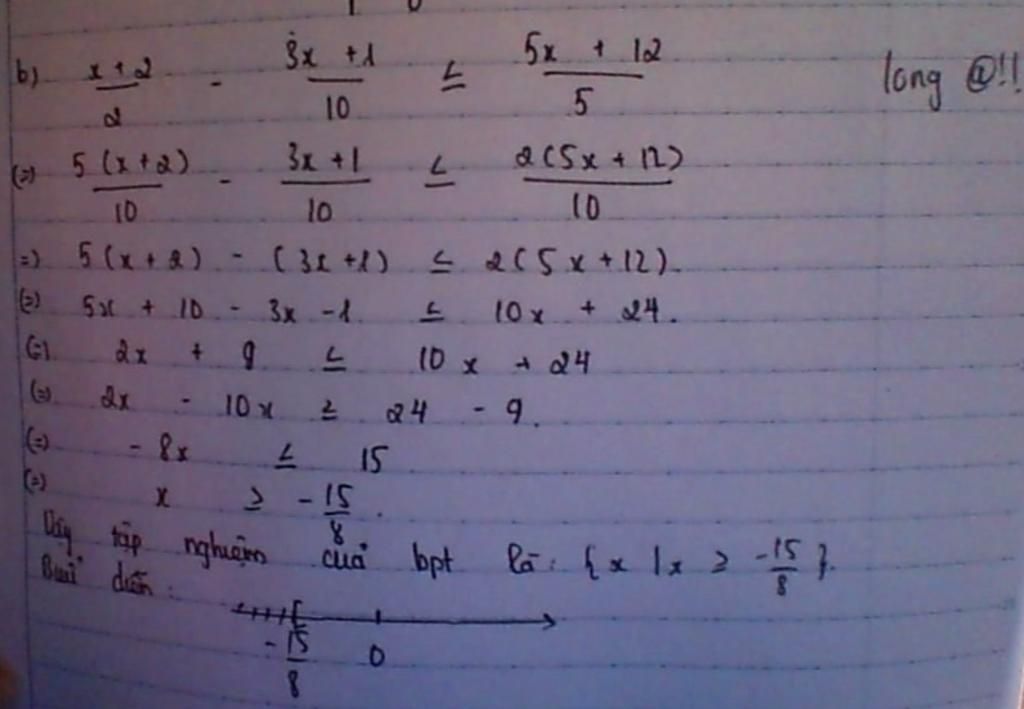 b) x + 2 / 2 - 3x + 1 / 10 ≤ 5x + 12 / 5
long @!!
(=) 5 (x + 2) / 10 - 3x + 1 / 10 ≤ 2(5x + 12) / 10
=) 5 (x + 2) - (3x + 1) ≤ 2(5x + 12).
(=) 5x + 10 - 3x - 1 ≤ 10x + 24.
(=) 2x + 9 ≤ 10x + 24
(=) 2x - 10x ≥ 24 - 9.
(=) - 8x ≤ 15
(=) x ≥ - 15 / 8 .
Vậy tập nghiệm của bpt là : { x | x ≥ -15 / 8 }.
Biểu diễn :
- 15 / 8 0